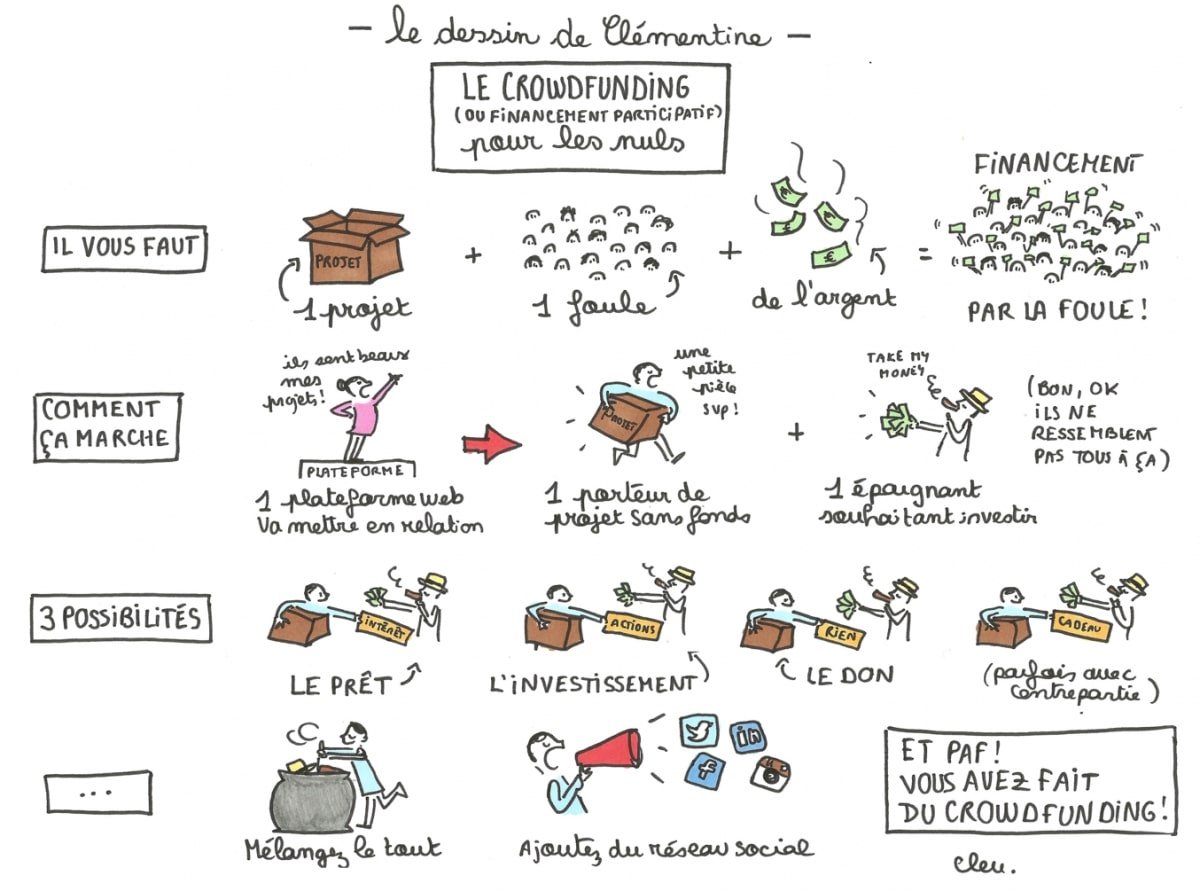 - le dessin de Clémentine -
LE CROWDFUNDING
(OU FINANCEMENT PARTICIPATIF)
pour les nuls
IL VOUS FAUT
PROJET
1 projet
+
1 foule
+
€
€
€
€
de l'argent
=
FINANCEMENT
PAR LA FOULE !
COMMENT
ÇA MARCHE
ils sont beaux
mes
projets !
PLATEFORME
1 plateforme web
va mettre en relation
PROJET
une
petite
pièce
svp !
1 porteur de
projet sans fonds
+
TAKE MY
MONEY
1 épaignant
souhaitant investir
(BON, OK
ILS NE
RESSEMBLENT
PAS TOUS À ÇA)
3 POSSIBILITÉS
INTÉRÊT
LE PRÊT
ACTIONS
L'INVESTISSEMENT
RIEN
LE DON
CADEAU
(parfois avec
contrepartie)
...
Mélangez le tout
in
f
Ajoutez du réseau social
ET PAF !
VOUS AVEZ FAIT
DU CROWDFUNDING !
cleu.